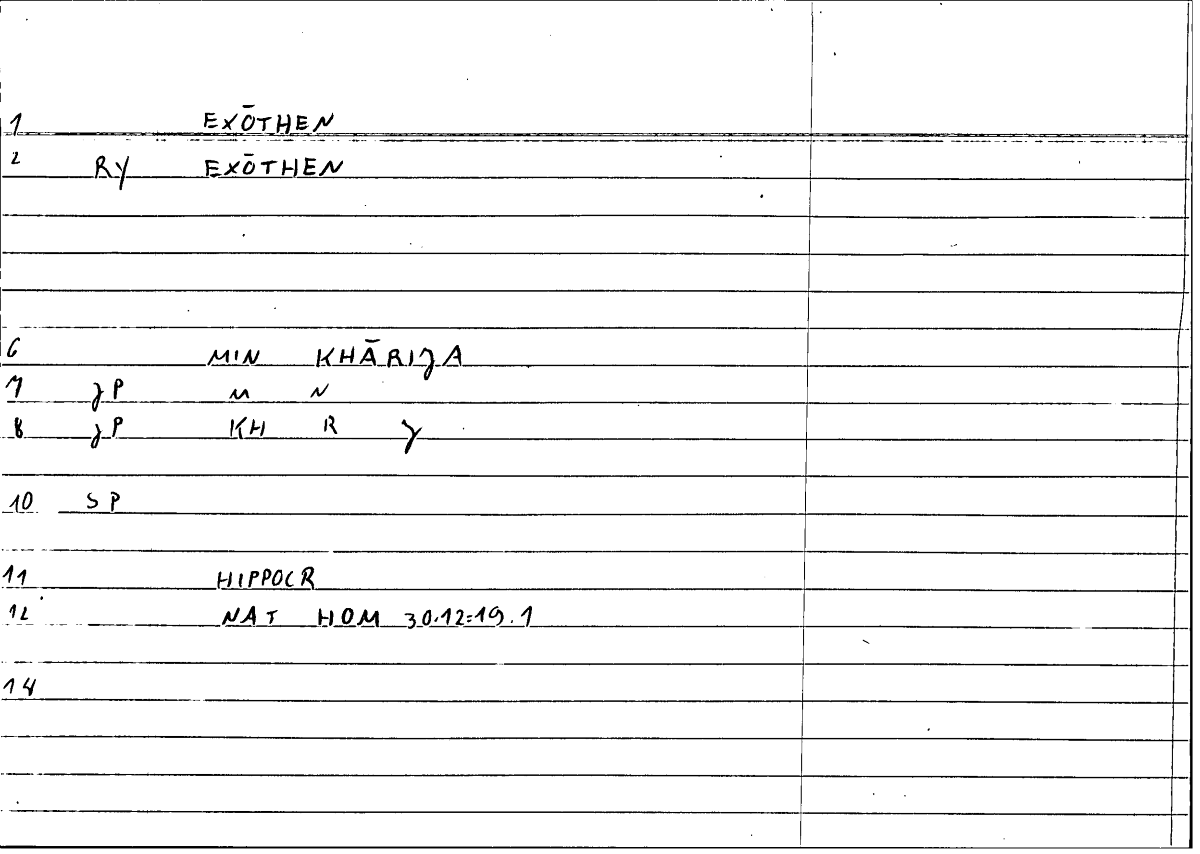 1 EXŌTHEN
2 RY EXŌTHEN
6 MIN KHĀRIJA
7 JP M N
8 JP KH R J
10 SP
11 HIPPOCR
12 NAT HOM 30.12=19.1
14